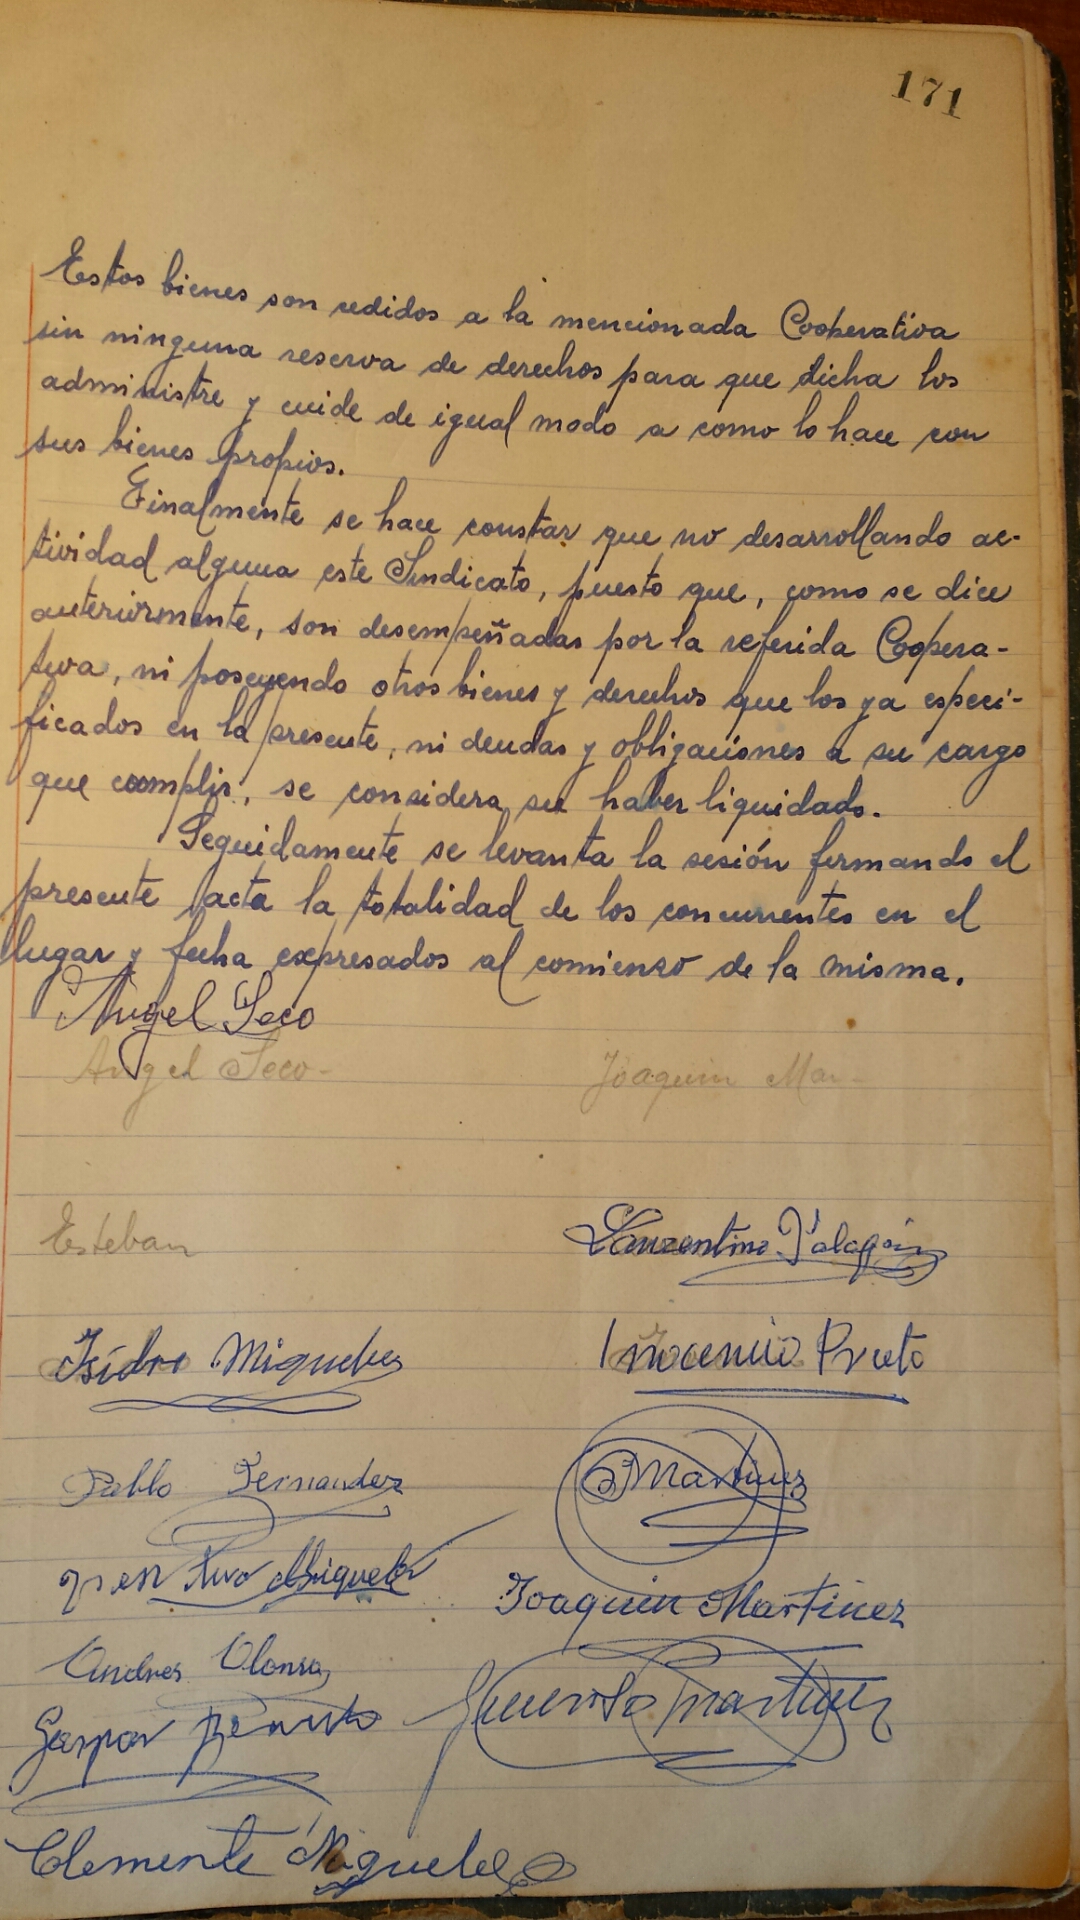 171
Estos bienes son cedidos a la mencionada Cooperativa
sin ninguna reserva de derechos para que dicha los
administre y cuide de igual modo a como lo hace con
sus bienes propios.
Finalmente se hace constar que no desarrollando ac-
tividad alguna este Sindicato, puesto que, como se dice
anteriormente, son desempeñadas por la referida Coopera-
tiva, ni poseyendo otros bienes y derechos que los ya especi-
ficados en la presente, ni deudas y obligaciones a su cargo
que coomplir, se considera su haber liquidado.
Seguidamente se levanta la sesión firmando el
presente acta la totalidad de los concurrentes en el
lugar y fecha expresados al comienzo de la misma.
Angel Seco
Angel Seco- Joaquin Mar-
Esteban
Isidro Miguelez Inocencio Prieto
Pablo Fernandez Martinez
Miguelez
Joaquin Martinez
Andres Alonso
Gaspar Benito Martinez
Clemente Miguelez